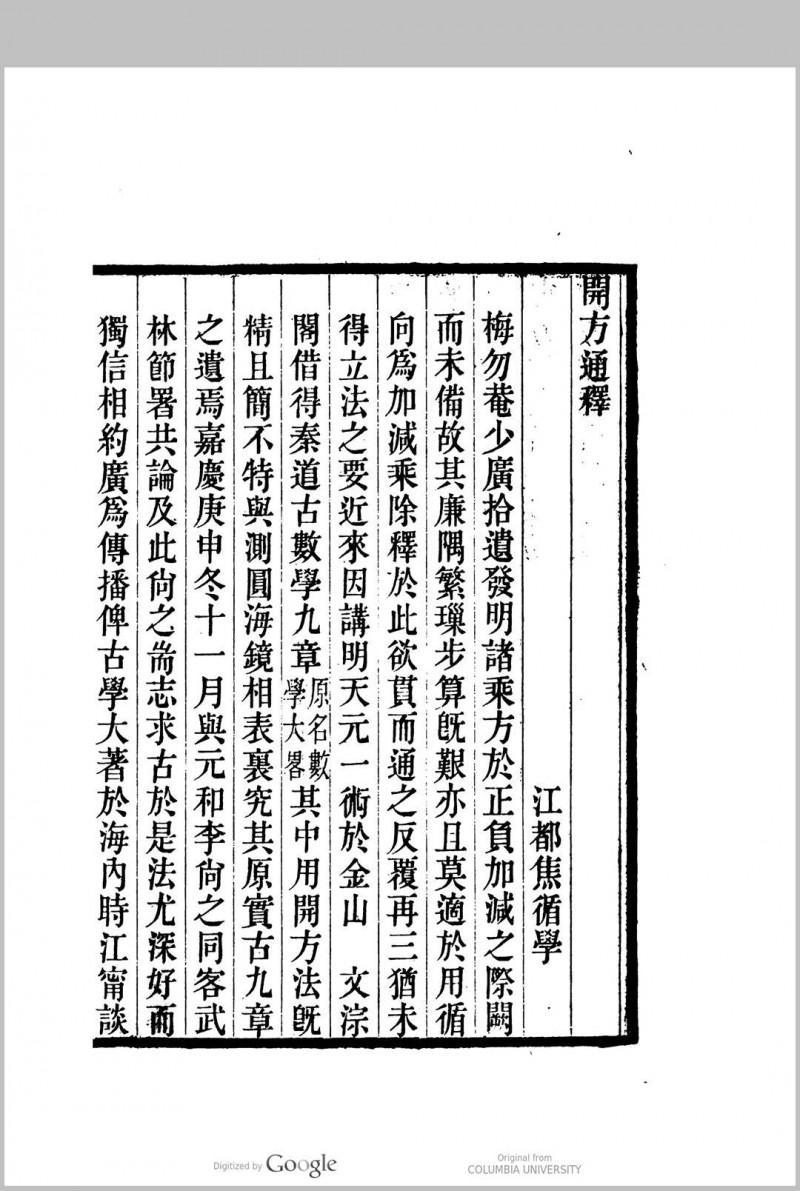 開方通釋
江都焦循學
梅勿菴少廣拾遺發明諸乘方於正負加減之際闕
而未備故其廉隅繁璅步算旣艱亦且莫適於用循
向爲加減乘除釋於此欲貫而通之反覆再三猶未
得立法之要近來因講明天元一術於金山　文淙
閣借得秦道古數學九章原名數學大畧其中用開方法旣
精且簡不特與測圓海鏡相表裏究其原實古九章
之遺焉嘉慶庚申冬十一月與元和李尙之同客武
林節署共論及此尙之耑志求古於是法尤深好而
獨信相約廣爲傳播俾古學大著於海內時江甯談
Digitized by Google
Original from
COLUMBIA UNIVERSITY